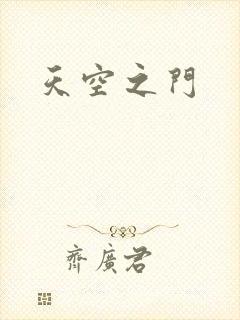 天空之門
齊廣君